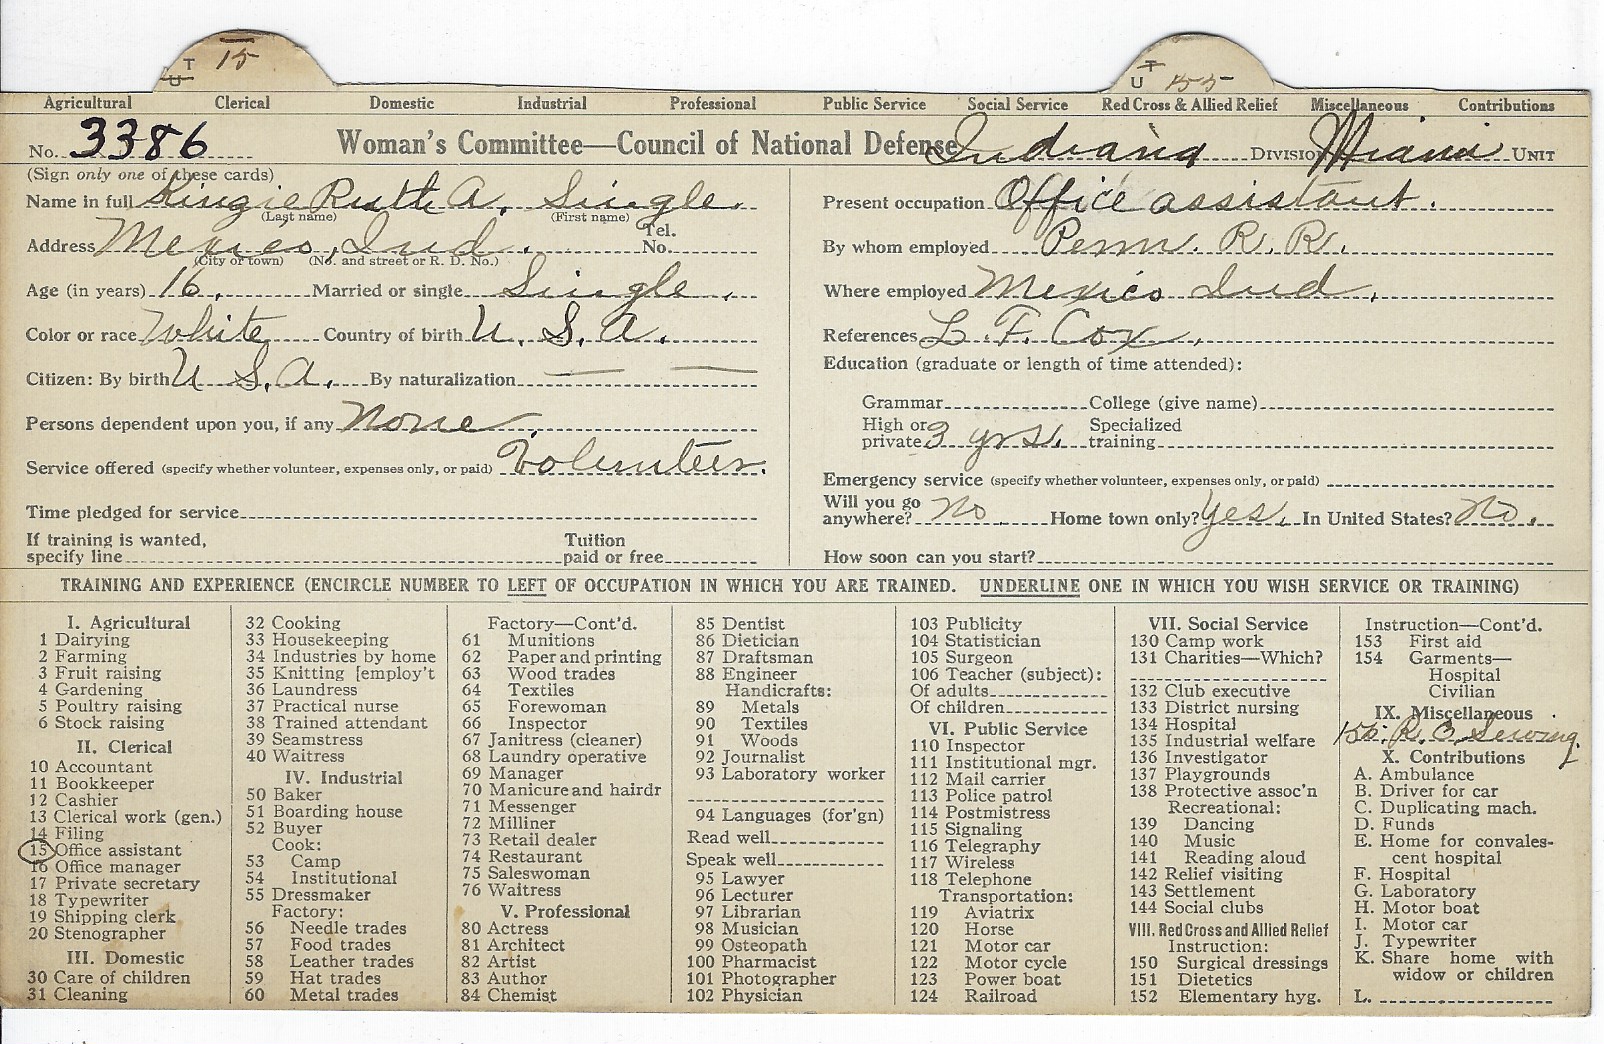 T U 15
T U 155
Agricultural Clerical Domestic Industrial Professional Public Service Social Service Red Cross & Allied Relief Miscellaneous Contributions
No. 3386 Woman's Committee—Council of National Defense Indiana Division Miami Unit
(Sign only one of these cards)
Name in full Kinzie Ruth A. Single.
(Last name) (First name)
Address Mexico, Ind. Tel. No.
(City or town) (No. and street or R. D. No.)
Age (in years) 16. Married or single Single.
Color or race White Country of birth U. S. A.
Citizen: By birth U S. A. By naturalization — —
Persons dependent upon you, if any None.
Service offered (specify whether volunteer, expenses only, or paid) Volunteer.
Time pledged for service
If training is wanted, specify line Tuition paid or free
Present occupation Office assistant.
By whom employed Penn. R. R.
Where employed Mexico Ind.
References L. F. Cox.
Education (graduate or length of time attended):
Grammar College (give name)
High or private 3 yrs. Specialized training
Emergency service (specify whether volunteer, expenses only, or paid)
Will you go anywhere? No Home town only? Yes. In United States? No.
How soon can you start?
TRAINING AND EXPERIENCE (ENCIRCLE NUMBER TO LEFT OF OCCUPATION IN WHICH YOU ARE TRAINED. UNDERLINE ONE IN WHICH YOU WISH SERVICE OR TRAINING)
I. Agricultural
1 Dairying
2 Farming
3 Fruit raising
4 Gardening
5 Poultry raising
6 Stock raising
II. Clerical
10 Accountant
11 Bookkeeper
12 Cashier
13 Clerical work (gen.)
14 Filing
15 Office assistant
16 Office manager
17 Private secretary
18 Typewriter
19 Shipping clerk
20 Stenographer
III. Domestic
30 Care of children
31 Cleaning
32 Cooking
33 Housekeeping
34 Industries by home
35 Knitting [employ't
36 Laundress
37 Practical nurse
38 Trained attendant
39 Seamstress
40 Waitress
IV. Industrial
50 Baker
51 Boarding house
52 Buyer
Cook:
53 Camp
54 Institutional
55 Dressmaker
Factory:
56 Needle trades
57 Food trades
58 Leather trades
59 Hat trades
60 Metal trades
Factory—Cont'd.
61 Munitions
62 Paper and printing
63 Wood trades
64 Textiles
65 Forewoman
66 Inspector
67 Janitress (cleaner)
68 Laundry operative
69 Manager
70 Manicure and hairdr
71 Messenger
72 Milliner
73 Retail dealer
74 Restaurant
75 Saleswoman
76 Waitress
V. Professional
80 Actress
81 Architect
82 Artist
83 Author
84 Chemist
85 Dentist
86 Dietician
87 Draftsman
88 Engineer
Handicrafts:
89 Metals
90 Textiles
91 Woods
92 Journalist
93 Laboratory worker
94 Languages (for'gn)
Read well
Speak well
95 Lawyer
96 Lecturer
97 Librarian
98 Musician
99 Osteopath
100 Pharmacist
101 Photographer
102 Physician
103 Publicity
104 Statistician
105 Surgeon
106 Teacher (subject):
Of adults
Of children
VI. Public Service
110 Inspector
111 Institutional mgr.
112 Mail carrier
113 Police patrol
114 Postmistress
115 Signaling
116 Telegraphy
117 Wireless
118 Telephone
Transportation:
119 Aviatrix
120 Horse
121 Motor car
122 Motor cycle
123 Power boat
124 Railroad
VII. Social Service
130 Camp work
131 Charities—Which?
132 Club executive
133 District nursing
134 Hospital
135 Industrial welfare
136 Investigator
137 Playgrounds
138 Protective assoc'n
Recreational:
139 Dancing
140 Music
141 Reading aloud
142 Relief visiting
143 Settlement
144 Social clubs
VIII. Red Cross and Allied Relief
Instruction:
150 Surgical dressings
151 Dietetics
152 Elementary hyg.
Instruction—Cont'd.
153 First aid
154 Garments—
Hospital
Civilian
IX. Miscellaneous
155. R. C. Sewing.
X. Contributions
A. Ambulance
B. Driver for car
C. Duplicating mach.
D. Funds
E. Home for convales-
cent hospital
F. Hospital
G. Laboratory
H. Motor boat
I. Motor car
J. Typewriter
K. Share home with
widow or children
L.